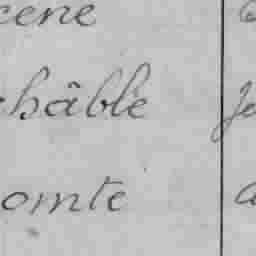 cene
hâble Je
omte a